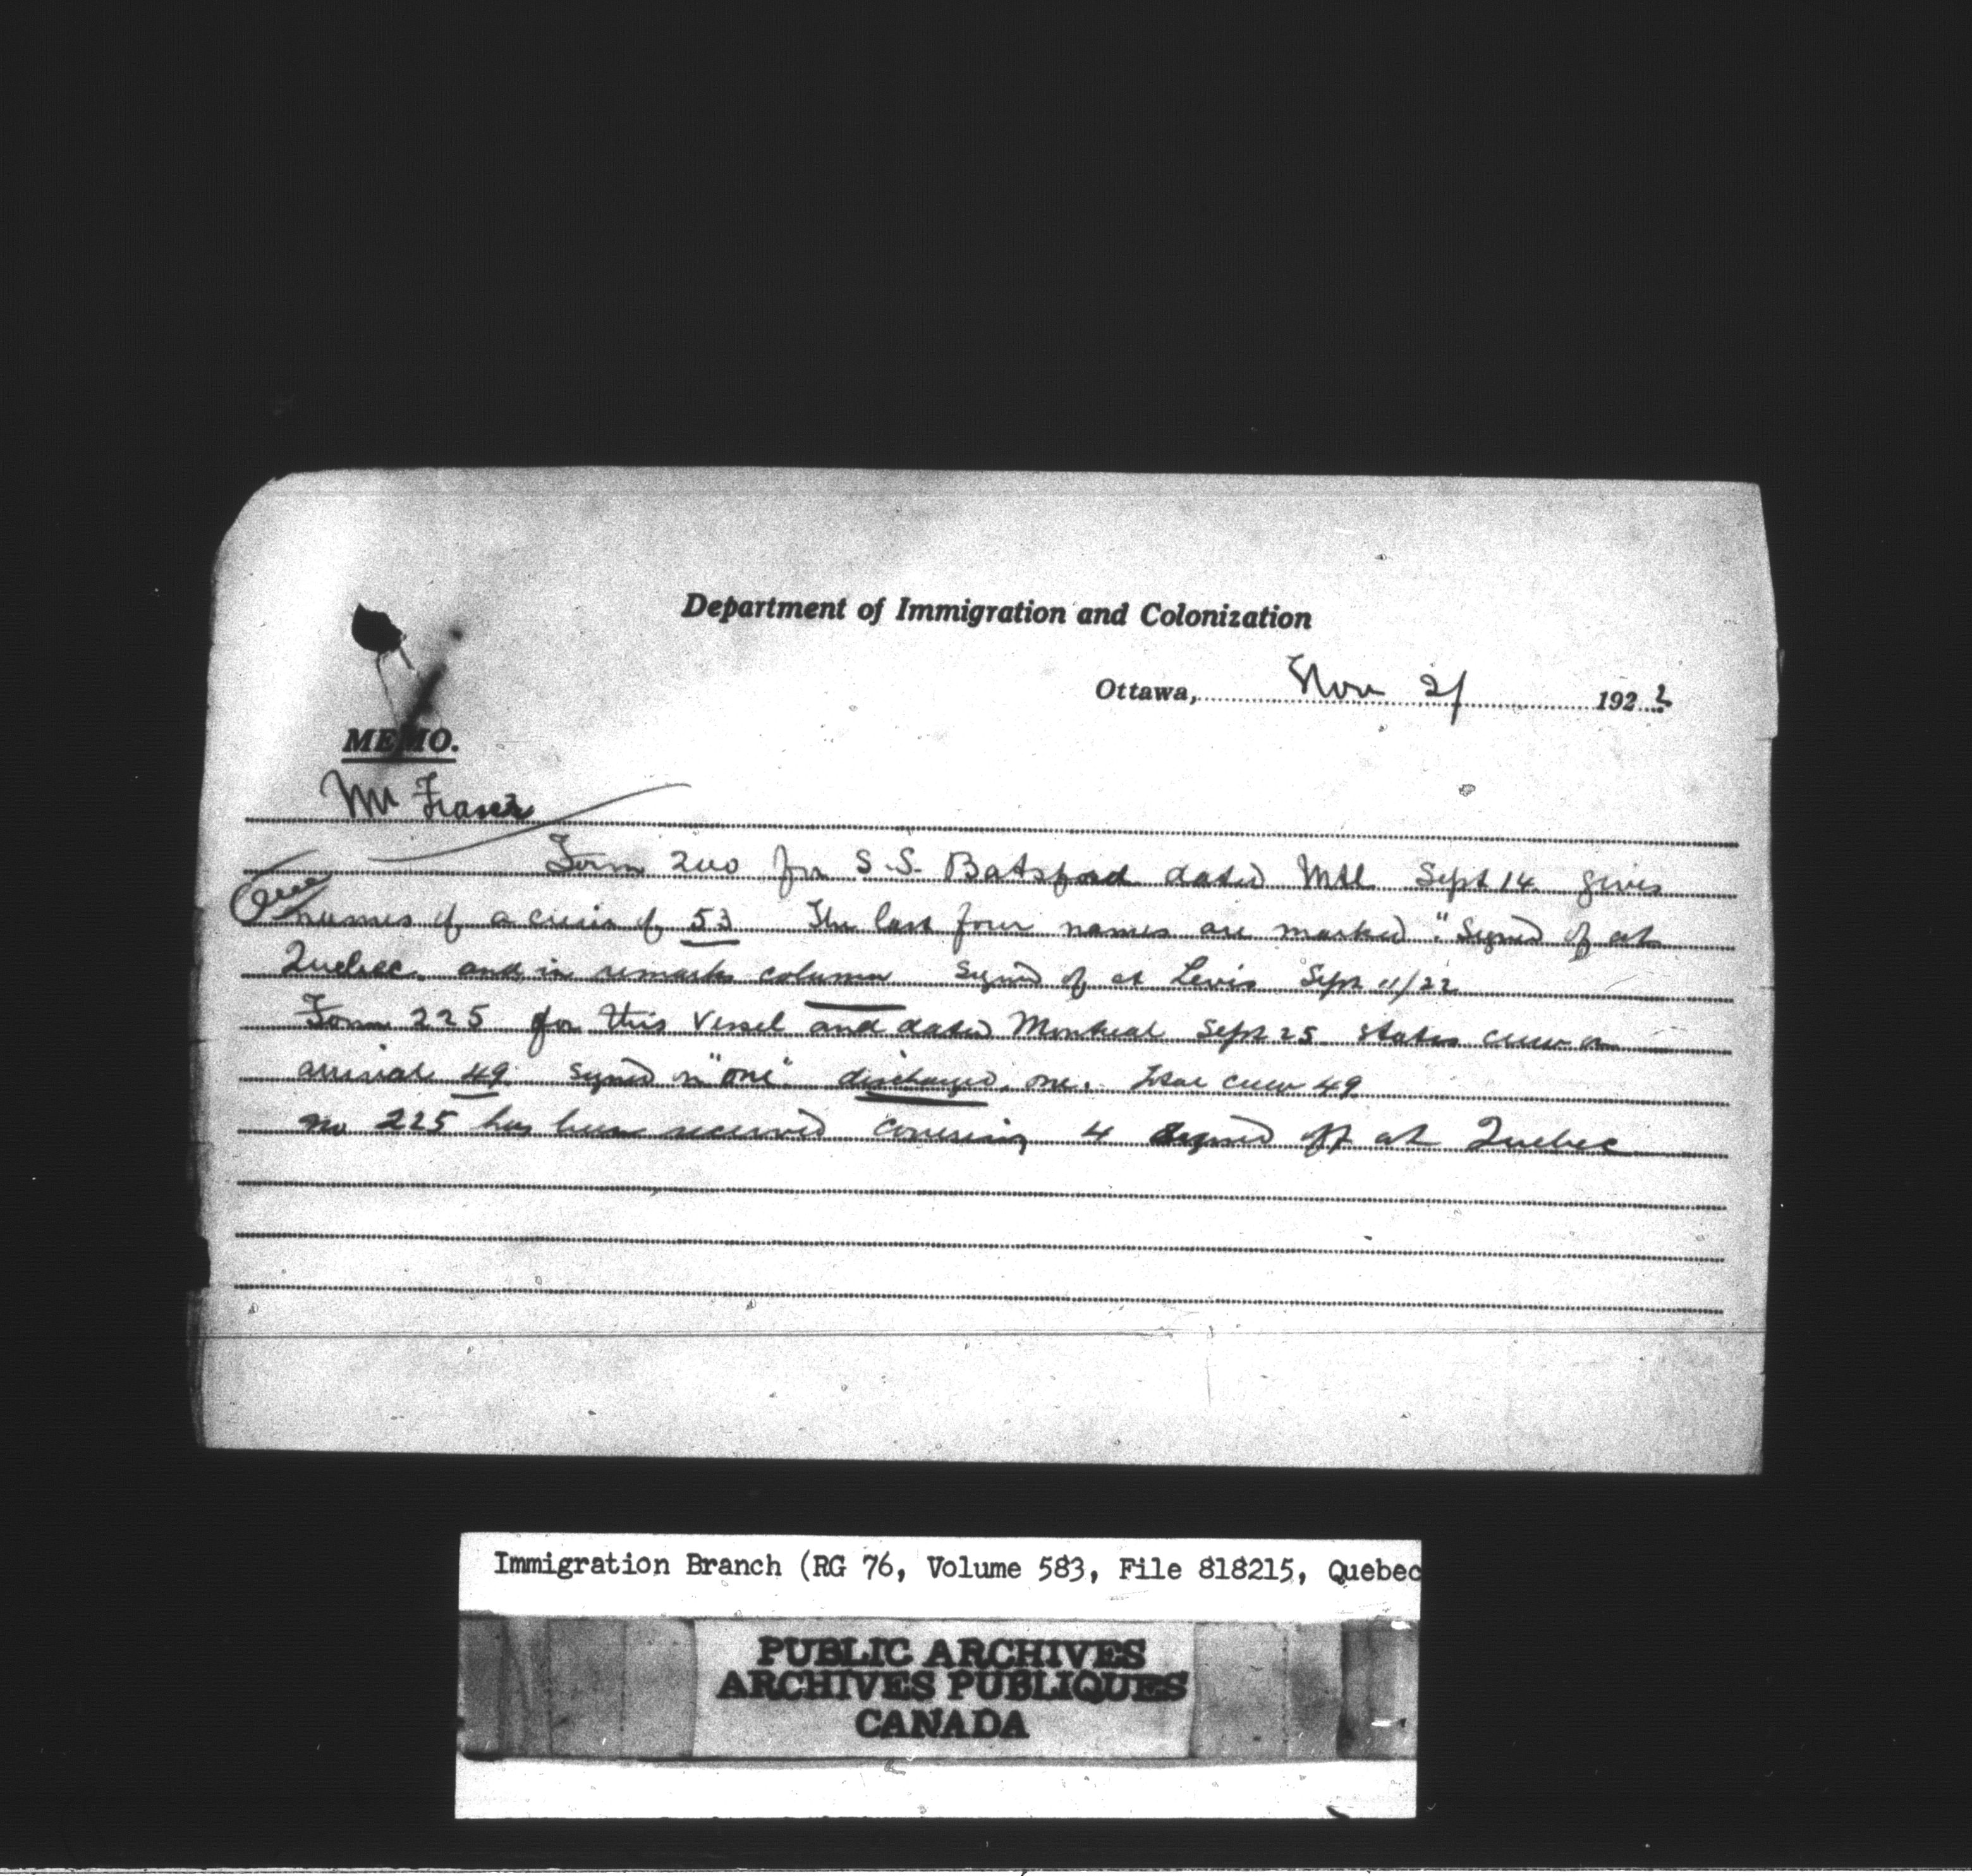 Department of Immigration and Colonization
Ottawa, Nov 21 1922
MEMO.
Mr Fraser
Form 200 for S.S. Batsford dated Mtl Sept 14 gives
names of a crew of 53 The last four names are marked "Signed of at
Quebec. and in remarks column signed of at Levis Sept 11/22
Form 225 for this vessel and dated Montreal Sept 25 states crew on
arrival 49 signed on "one" discharged, one. Total crew 49
no 225 has been received covering 4 signed off at Quebec
Immigration Branch (RG 76, Volume 583, File 818215, Quebec
PUBLIC ARCHIVES
ARCHIVES PUBLIQUES
CANADA